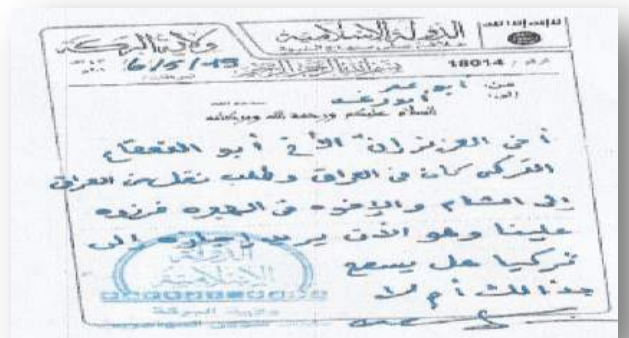 لا إله إلا الله
الدولة الإسلامية
ولاية البركة
بسم الله الرحمن الرحيم
رقم / 18014
6/5/15
من: أبو عمر
إلى: أبو رغد
السلام عليكم ورحمة الله وبركاته
أخي العزيز إن الأخ أبو القعقاع
التركي كان في العراق وطلب نقل من العراق
إلى الشام والإخوة في الهجرة فرزوه
علينا وهو الآن يريد إجازة إلى
تركيا هل يسمح
بذالك أم لا
الدولة
الإسلامية
ولاية البركة